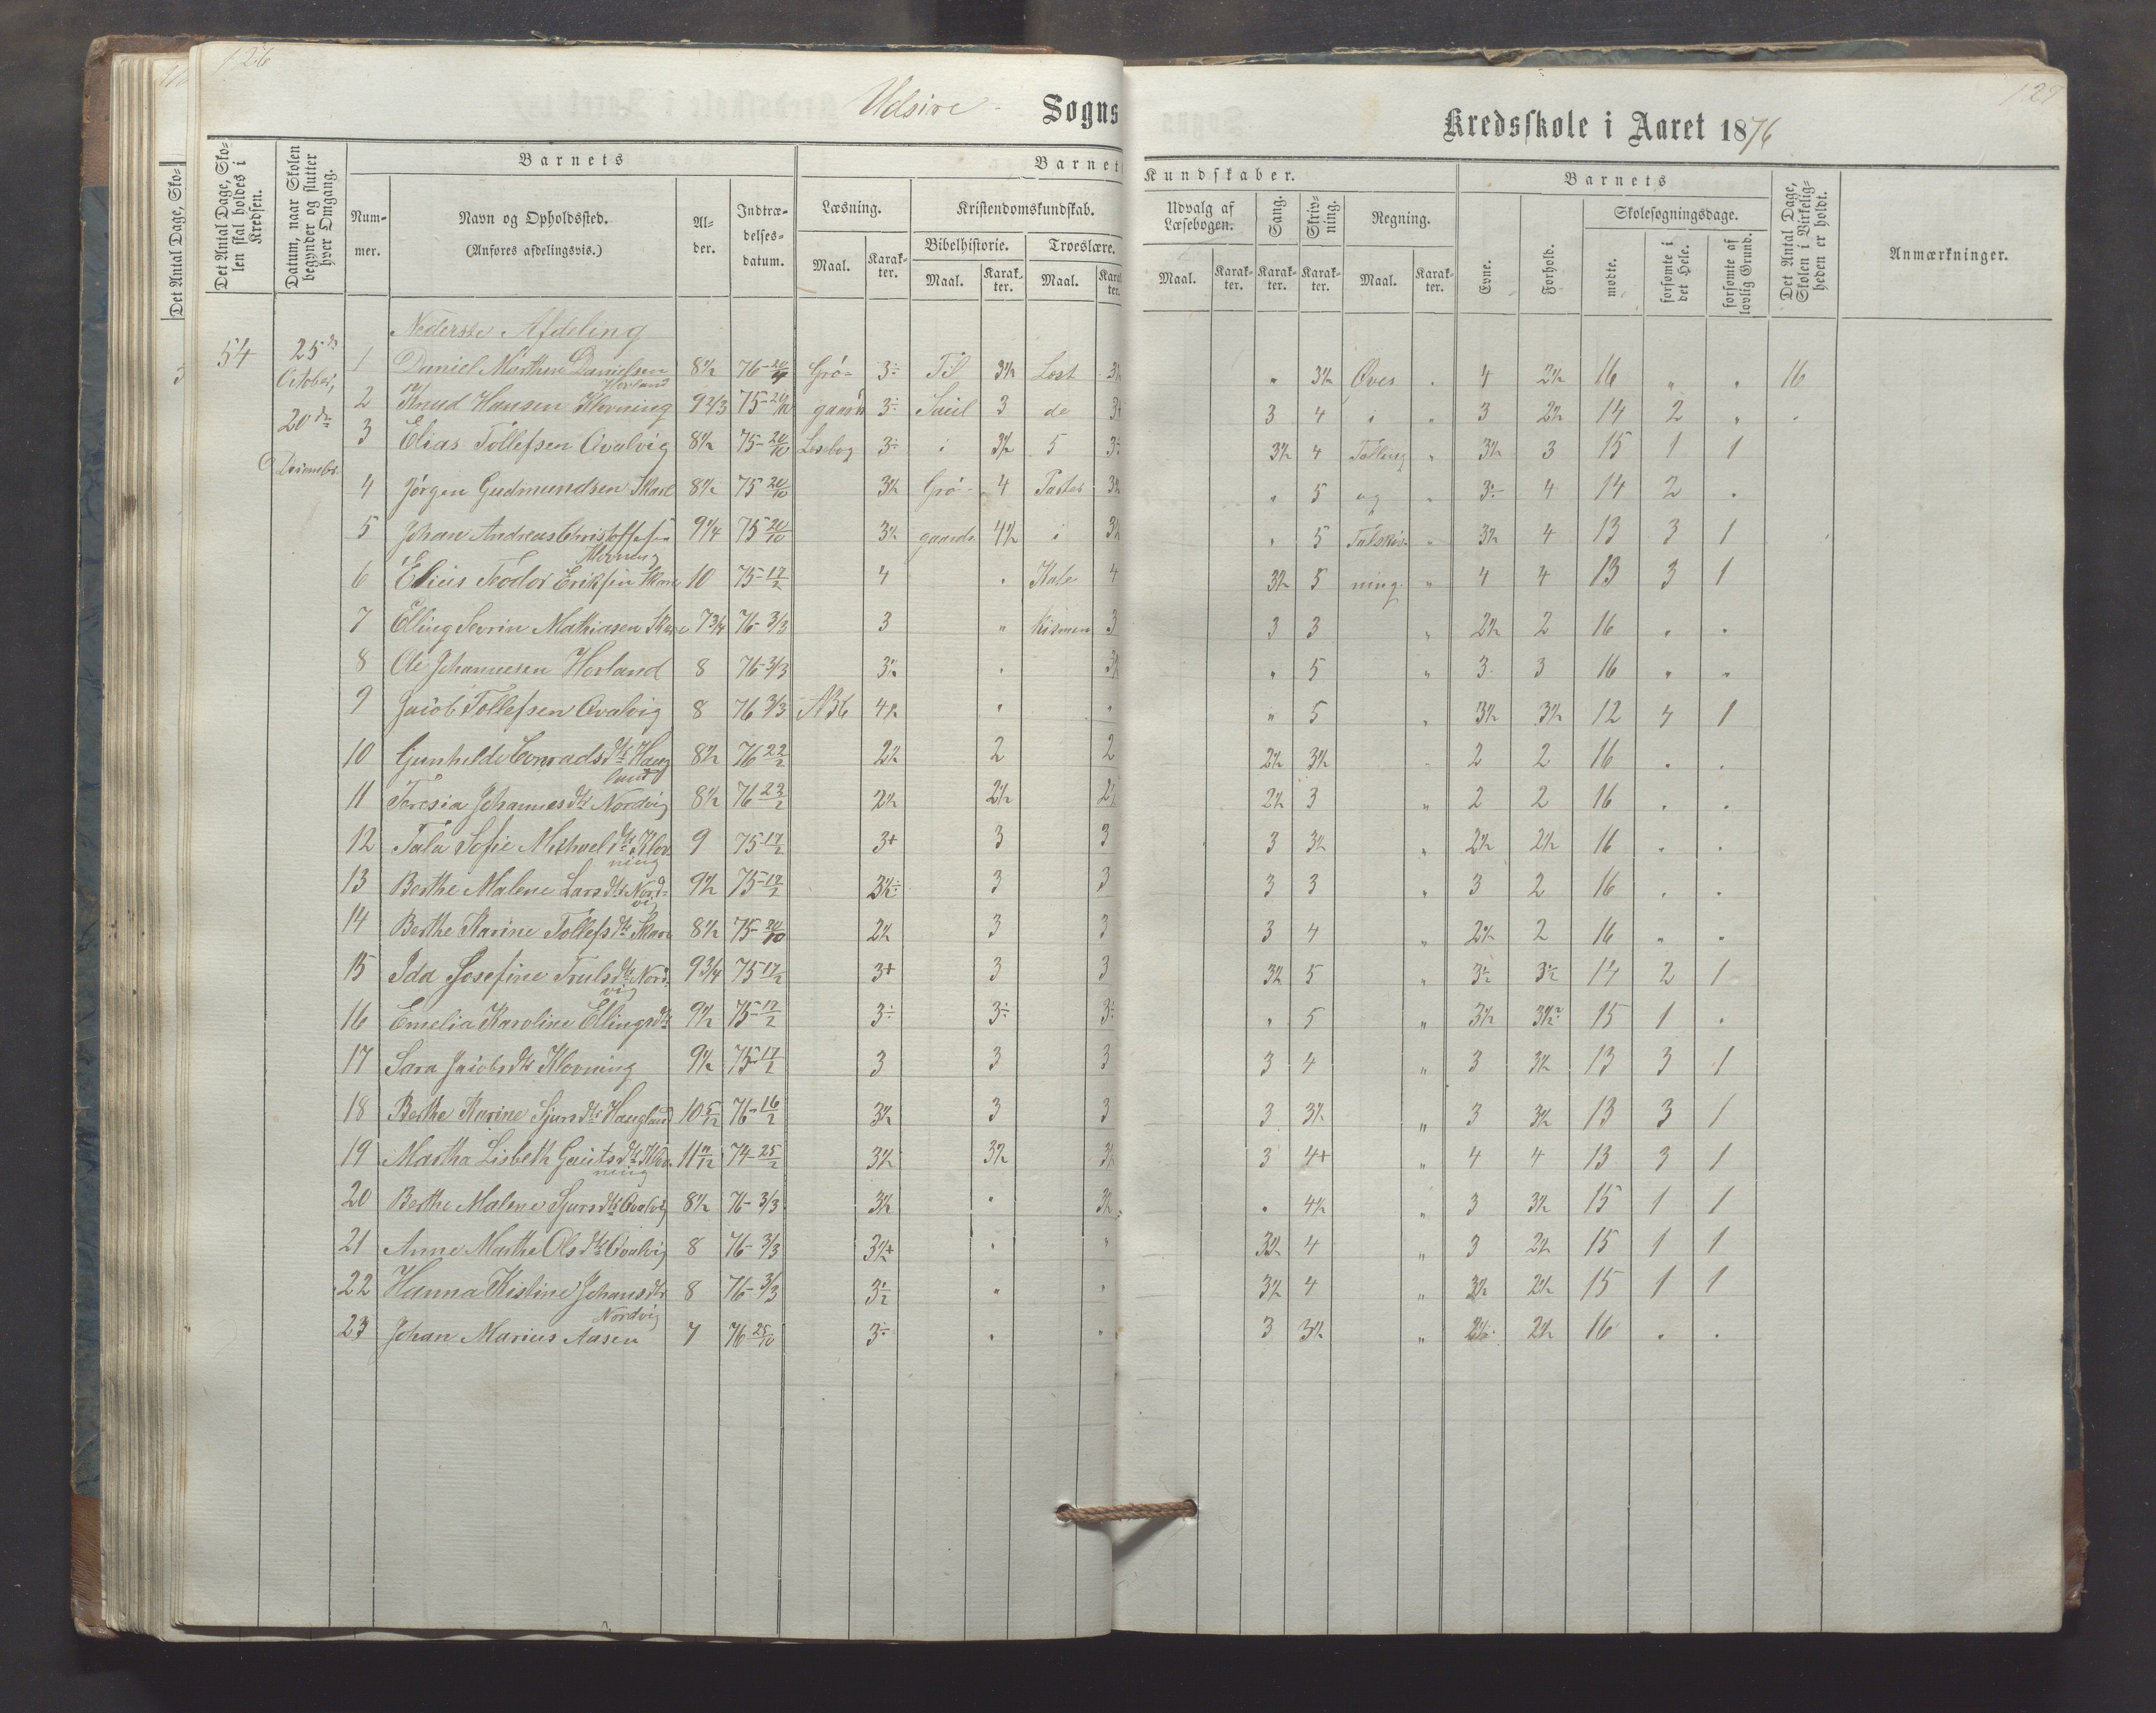 126
127
Udsire Sogns
Kredsskole i Aaret 1876
Det Antal Dage, Sko-
Det Antal Dage, Sko-
len skal holdes i
Kredsen.
Datum, naar Skolen
begynder og slutter
hver Omgang.
Barnets
Num-
mer.
Navn og Opholdssted.
(Anføres afdelingsvis.)
Al-
der.
Indtræ-
delses-
datum.
Barnets
Kundskaber.
Læsning.
Maal.
Karak-
ter.
Kristendomskundskab.
Bibelhistorie.
Maal.
Karak-
ter.
Troeslære.
Maal.
Karak-
ter.
Udvalg af
Læsebogen.
Maal.
Karak-
ter.
Sang.
Karak-
ter.
Skriv-
ning.
Karak-
ter.
Regning.
Maal.
Karak-
ter.
Barnets
Evne.
Forhold.
Skolesøgningsdage.
mødte.
forsømte i
det Hele.
forsømte af
lovlig Grund.
Det Antal Dage,
Skolen i Virkelig-
heden er holdt.
Anmærkninger.
Nederste Afdeling
54 25de October, 20de December
1 Daniel Marthin Danielsen Hovland 8½ 76-20/4 Grø- 3÷ Til 3½ Lært 3½ " 3½ Øvet " 4 2½ 16 " " 16
2 Knud Hansen Klovning 9 2/3 75-20/10 gaards 3÷ Saul 3 de 3+ 3 4 i " 3 2½ 14 2 "
3 Elias Tollefsen Qvalvig 8½ 75-20/10 Læsebog 3÷ i 3½ 5 3÷ 3½ 4 Tælling " 3½ 3 15 1 1
4 Jørgen Gudmundsen Skare 8½ 75 20/10 3½ Grø- 4 Parter 3½ " 5 og " 3÷ 4 14 2 "
5 Johan Andreas Christoffersen Klovning 9¼ 75 20/10 3½ gaards 4½ i 3½ " 5 Talskriv- " 3½ 4 13 3 1
6 Elius Teodor Eriksen Skare 10 75-17/2 4 " Kate 4 3½ 5 ning. " 4 4 13 3 1
7 Elling Sevrin Mathiasen Skare 7¾ 76-3/3 3 " kismen 3 3 3 " 2½ 2 16 " "
8 Ole Johannesen Hovland 8 76-3/3 3½ " 3½ " 5 " 3 3 16 " "
9 Jacob Tollefsen Qvalvig 8 76 3/3 ABC 4½ " " " 5 " 3½ 3½ 12 4 1
10 Gunhilde Conradsdtr Haugland 8½ 76 22/2 2½ 2 2 2½ 3½ " 2 2 16 " "
11 Teresia Johannesdtr Nordvig 8½ 76 23/2 2½ 2½ 2½ 2½ 3 " 2 2 16 " "
12 Tala Sofie Michaeldtr Klovning 9 75-17/2 3+ 3 3 3 3½ " 2½ 2½ 16 " "
13 Berthe Malene Larsdtr Nordvig 9½ 75-17/2 3½÷ 3 3 3 3 " 3 2 16 " "
14 Berthe Karine Tollefsdtr Skare 8½ 75-20/10 2½ 3 3 3 4 " 2½ 2 16 " "
15 Ida Josefine Trulsdtr Nordvig 9¾ 75 17/2 3+ 3 3 3½ 5 " 3½ 3½ 14 2 1
16 Emelia Karoline Ellingsdtr 9½ 75-17/2 3÷ 3÷ 3÷ " 5 " 3½ 3½ 15 1 "
17 Sara Jacobsdtr Klovning 9½ 75-17/2 3 3 3 3 4 " 3 3½ 13 3 1
18 Berthe Karine Sjursdtr Haugland 10 5/12 76-16/2 3½ 3 3 3 3½ " 3 3½ 13 3 1
19 Martha Lisbeth Gautsdtr Klovning 11 11/12 74-25/2 3½ 3½ 3½ 3 4+ " 4 4 13 3 1
20 Berthe Malene Sjursdtr Qvalvig 8½ 76-3/3 3½ " 3½ " 4½ " 3 3½ 15 1 1
21 Anne Marthe Olsdtr Qvalvig 8 76-3/3 3½+ " " 3½ 4 " 3 2½ 15 1 1
22 Hanna Kistine Johansdtr Nordvig 8 76-3/3 3½ " " 3½ 4 " 3½ 2½ 15 1 1
23 Johan Marius Aasen 7 76 25/10 3÷ " " 3 3½ " 2½ 2½ 16 " "